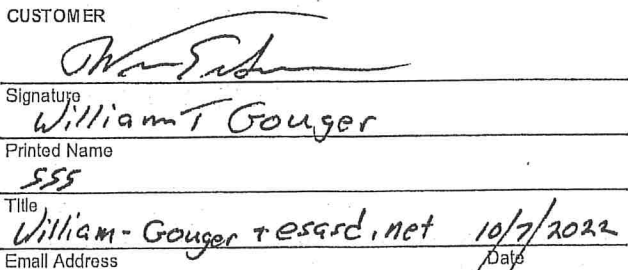 CUSTOMER
Signature
William T Gouger
Printed Name
SSS
Title
William-Gouger @esasd.net 10/7/2022
Email Address Date